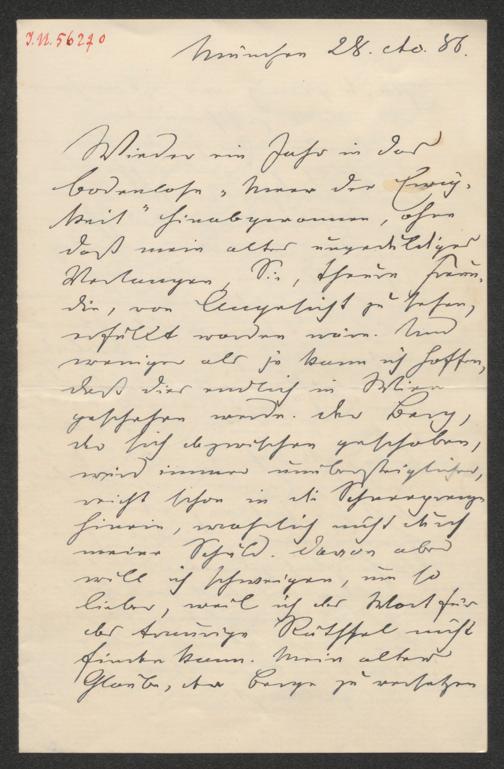 I.N. 56270
München 28. Dec. 86.
Wieder ein Jahr in das
bodenlose „Meer der Ewig-
keit" hinabgeronnen, ohne
daß mein altes ungeduldiges
Verlangen, Sie, theure Freun-
din, von Angesicht zu sehen,
erfüllt worden wäre. Und
weniger als je kann ich hoffen,
daß dies endlich in Wien
geschehen werde. Der Berg,
der sich dazwischen geschoben,
wird immer unübersteiglicher,
reicht schon in die Schneegrenze
hinein, wahrlich nicht durch
meine Schuld. Davon aber
will ich schweigen, um so
lieber, weil ich das Wort für
das traurige Räthsel nicht
finden kann. Mein alter
Glaube, der Berge zu versetzen